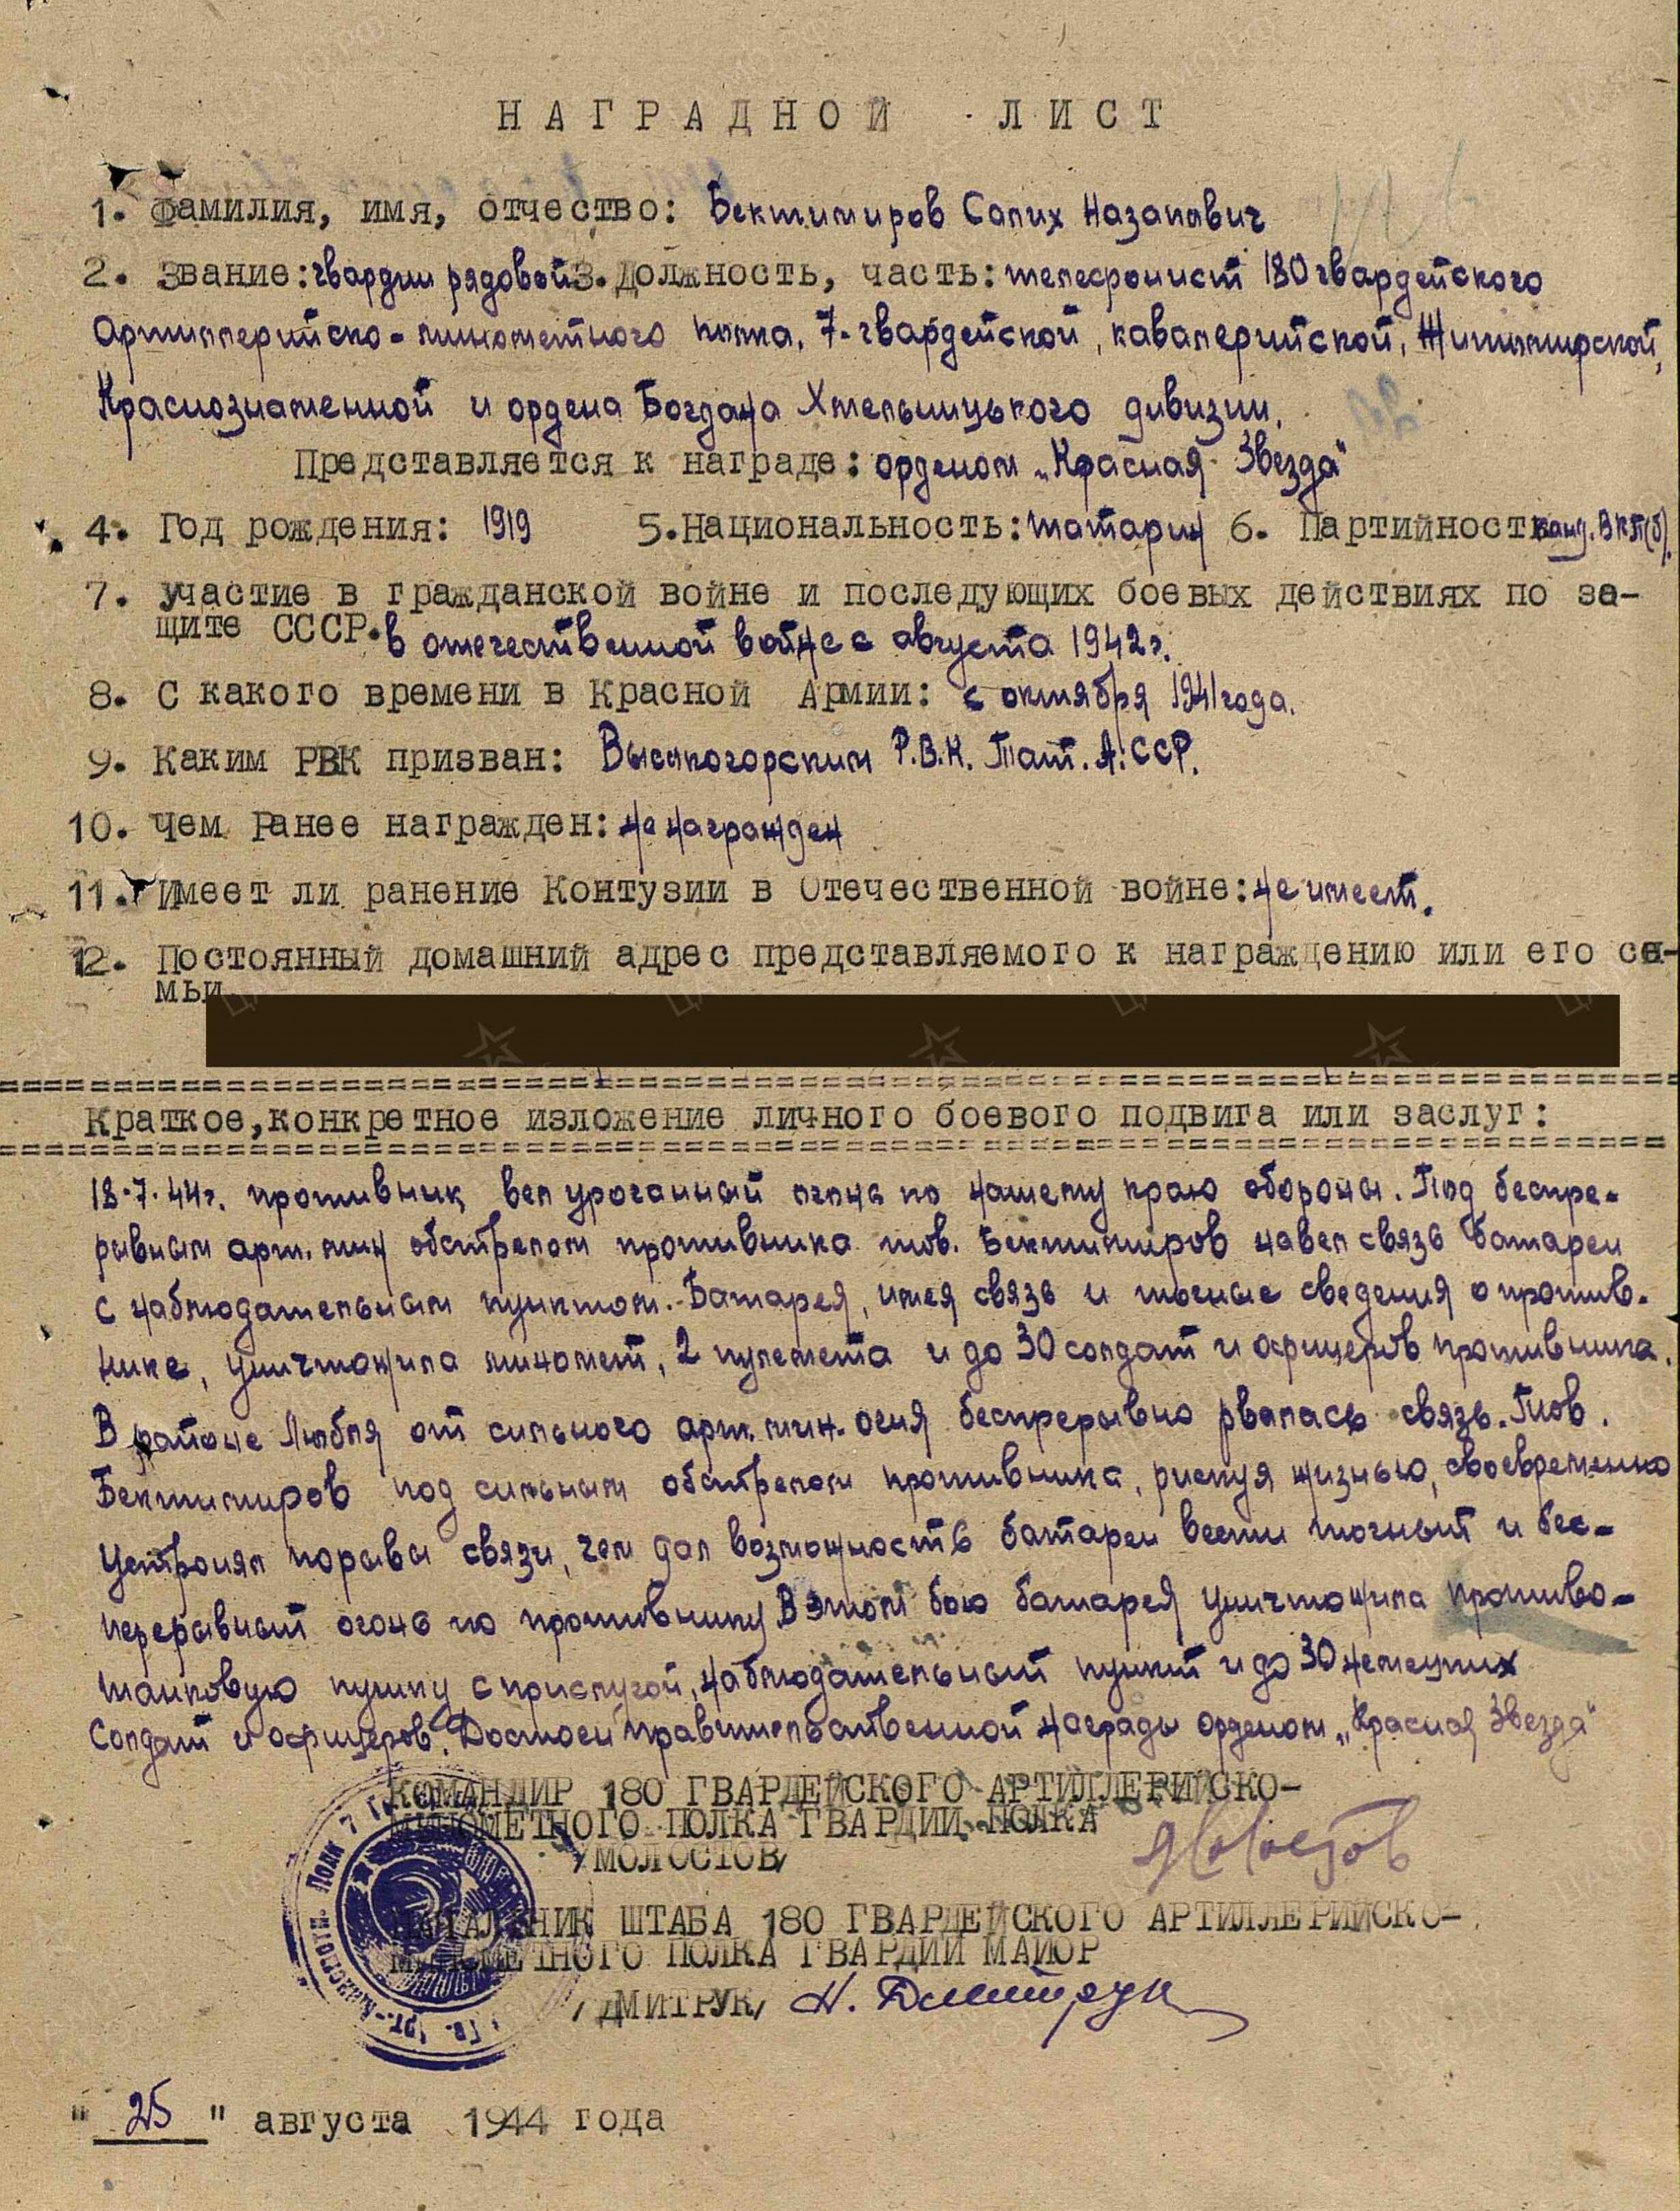 НАГРАДНОЙ ЛИСТ
1. Фамилия, имя, отчество: Бектимиров Салих Назапович
2. Звание: гвардии рядовой 3. Должность, часть: телефонист 180 гвардейского
Артиллерийско-минометного полка, 7-гвардейской, кавалерийской, Житомирской,
Краснознаменной и ордена Богдана Хмельницького дивизии.
Представляется к награде: орденом „Красная Звезда"
4. Год рождения: 1919 5. Национальность: татарин 6. Партийность канд. ВКП(б).
7. участие в гражданской войне и последующих боевых действиях по за-
щите СССР. в отечественной войне с августа 1942г.
8. С какого времени в Красной Армии: с октября 1941 года.
9. Каким РВК призван: Высокогорским Р.В.К. Тат. А.ССР.
10. Чем Ранее награжден: не награжден
11. Имеет ли ранение Контузии в Отечественной войне: не имеет.
12. Постоянный домашний адрес представляемого к награждению или его се-
мьи
Краткое, конкретное изложение личного боевого подвига или заслуг:
18.7.44г. противник вел ураганный огонь по нашему краю обороны. Под беспре-
рывным арт. мин обстрелом противника тов. Бектимиров навел связь батареи
с наблюдательным пунктом. Батарея, имея связь и точные сведения о против-
нике, уничтожила миномет, 2 пулемета и до 30 солдат и офицеров противника.
В районе Любля от сильного арт. мин. огня беспрерывно рвалась связь. Тов.
Бектимиров под сильным обстрелом противника, рискуя жизнью, своевременно
устронял порывы связи, чем дал возможность батареи вести точный и бес-
перерывный огонь по противнику. В этом бою батарея уничтожила противо-
танковую пушку с прислугой, наблюдательный пункт и до 30 немецких
Солдат и офицеров. Достоен правительственной награды орденом „Красная Звезда"
КОМАНДИР 180 ГВАРДЕЙСКОГО АРТИЛЛЕРИЙСКО-
МИНОМЕТНОГО ПОЛКА ГВАРДИИ ПОЛКА
/МОЛОСТОВ/
НАЧАЛЬНИК ШТАБА 180 ГВАРДЕЙСКОГО АРТИЛЛЕРИЙСКО-
МИНОМЕТНОГО ПОЛКА ГВАРДИИ МАЙОР
/ДМИТРУК/ Н. Дмитрук
"25" августа 1944 года